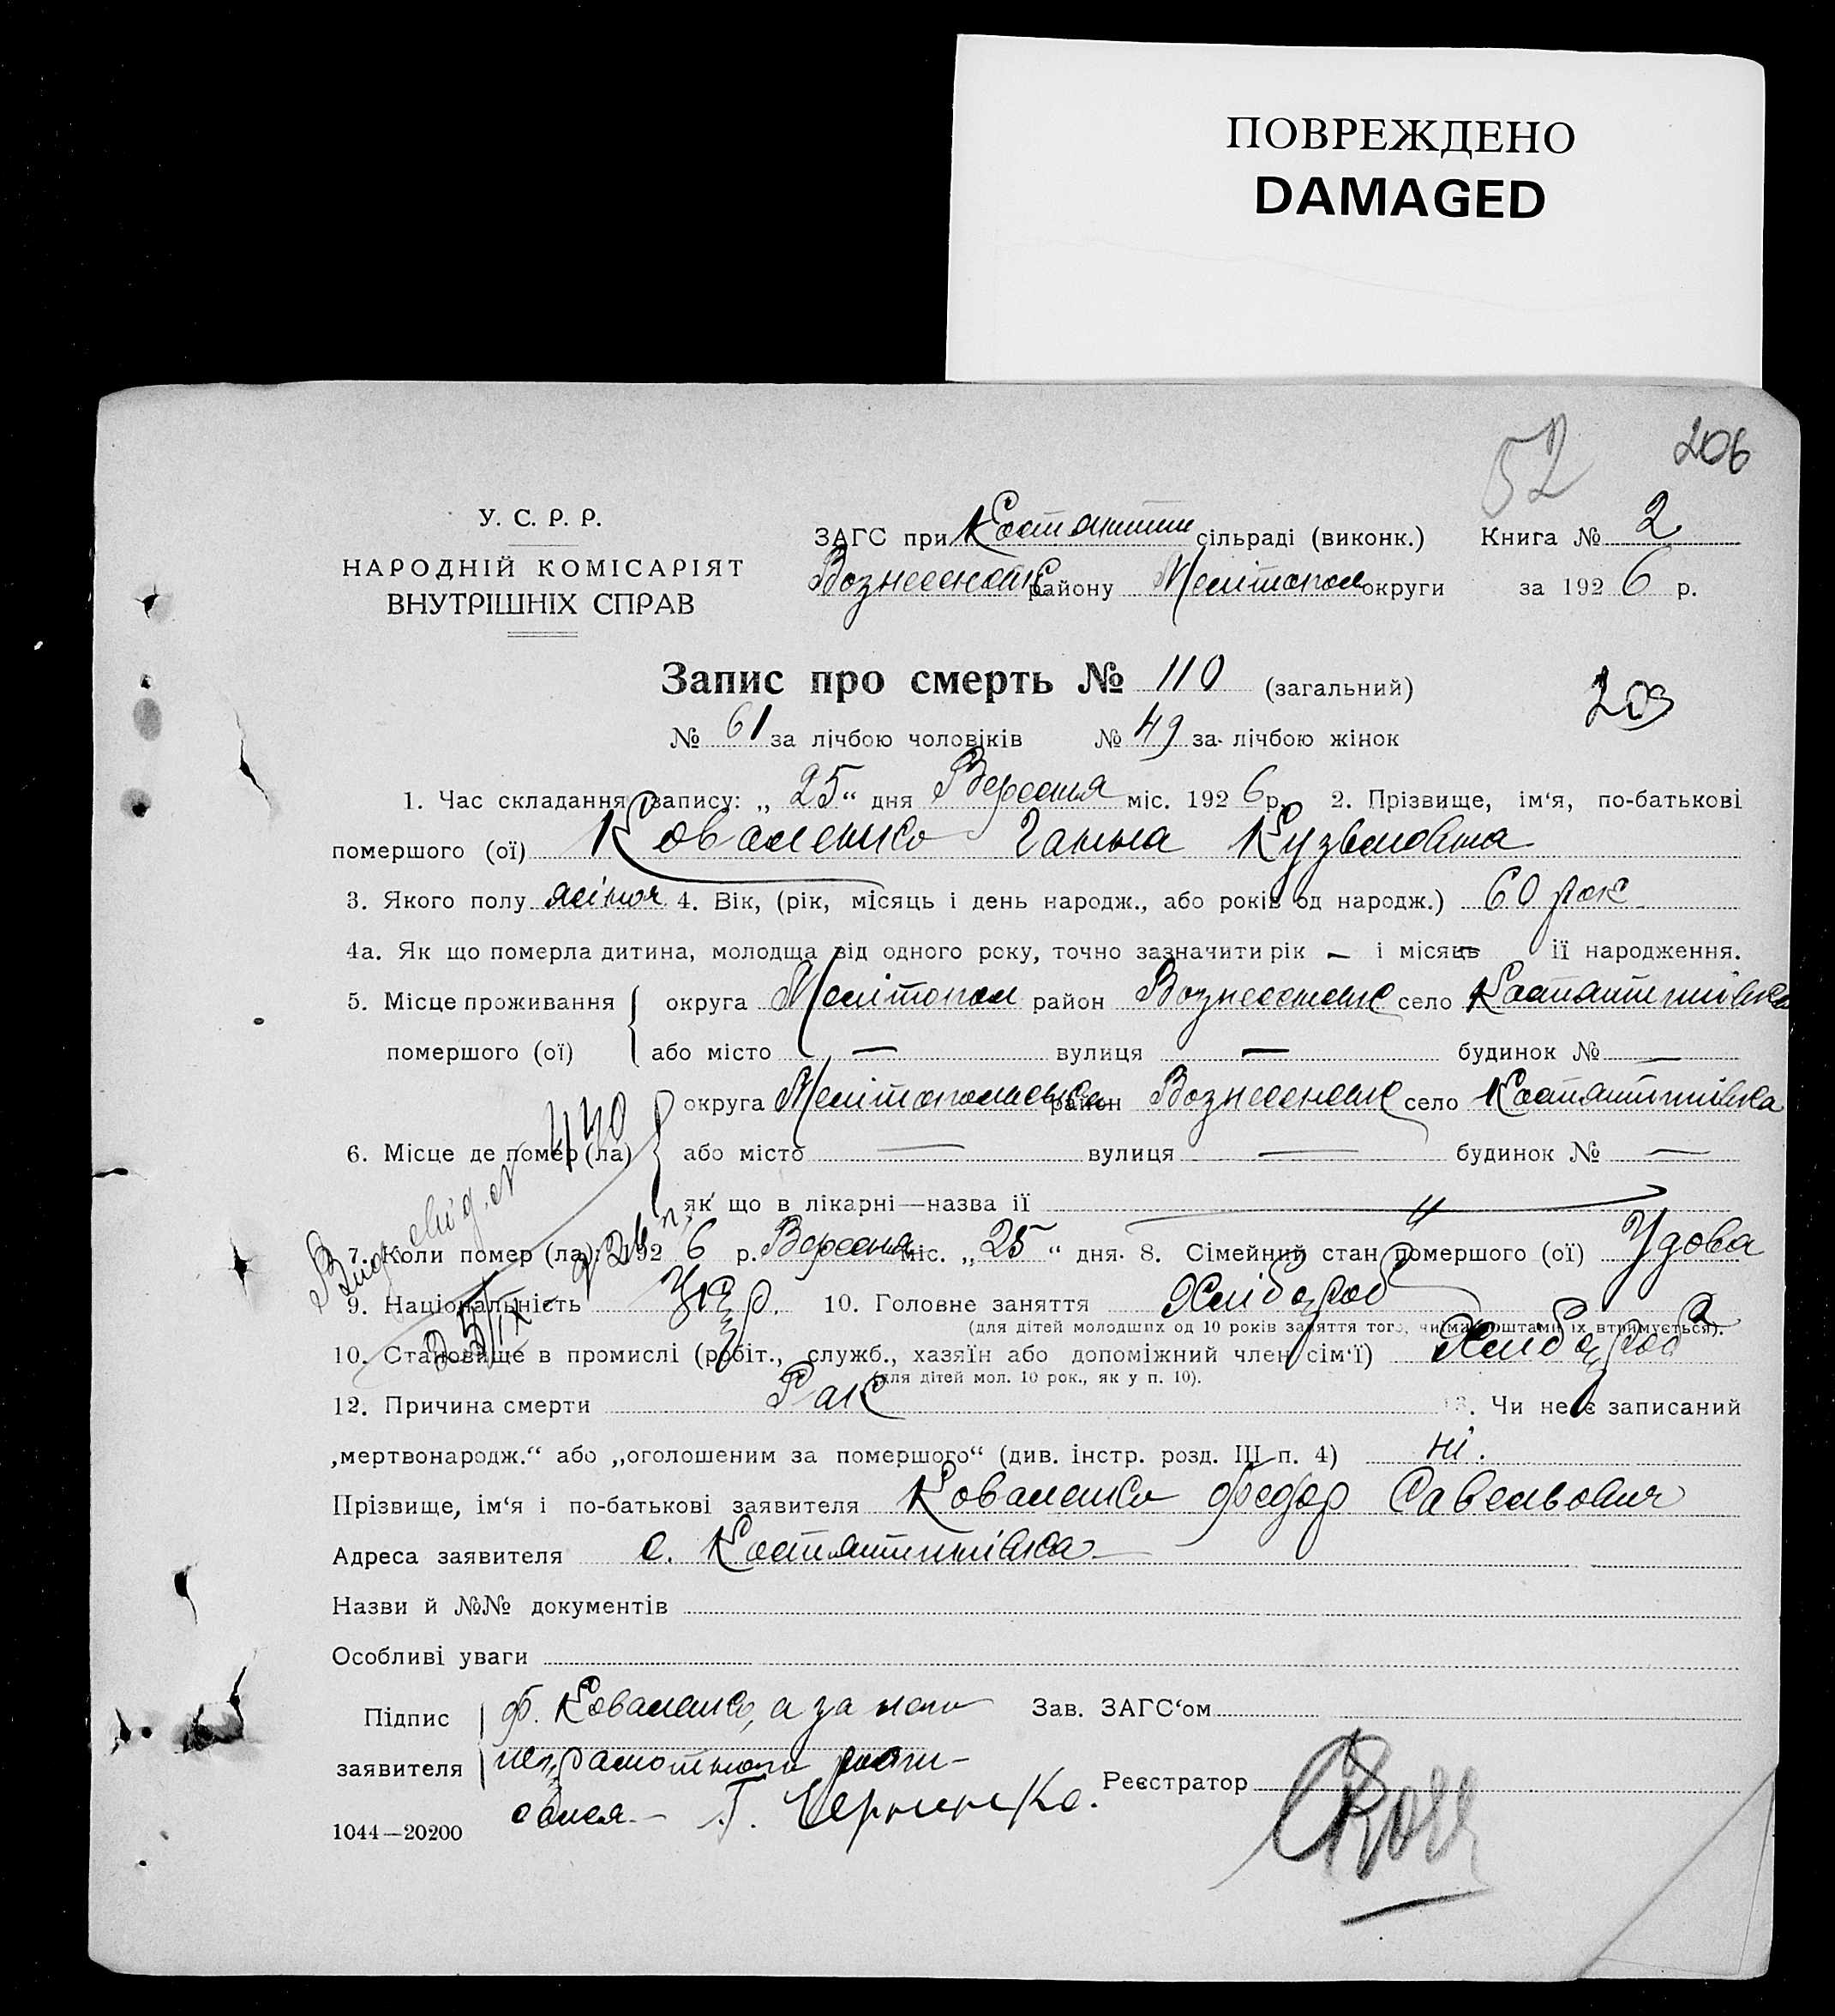 ПОВРЕЖДЕНО
DAMAGED
52 206
У. С. Р. Р.
НАРОДНІЙ КОМІСАРІЯТ
ВНУТРІШНІХ СПРАВ
ЗАГС при Костянтин сільраді (виконк.) Книга № 2
Вознесенськ району Мелітопол округи за 1926 р.
Запис про смерть № 110 (загальний)
203
№ 61 за лічбою чоловіків № 49 за лічбою жінок
1. Час складання запису: „25“ дня Вересня міс. 1926 р. 2. Прізвище, ім‘я, по-батькові
помершого (ої) Коваленко Ганна Кузьмовна
3. Якого полу жіноч 4. Вік, (рік, місяць і день народж., або років од народж.) 60 рок
4а. Як що померла дитина, молодща від одного року, точно зазначити рік — і місяць її народження.
5. Місце проживання округа Мелітопол район Вознесенськ село Костянтинівка
помершого (ої) або місто — вулиця — будинок № —
округа Мелітопольська район Вознесенськ село Костянтинівка
6. Місце де помер (ла) або місто — вулиця — будинок № —
як що в лікарні—назва її "
Вид. свід. № 440
7. Коли помер (ла): 1926 р. Вересня міс. „25“ дня. 8. Сімейний стан помершого (ої) Удова
9. Національність Укр. 10. Головне заняття Хлібороб
(для дітей молодших од 10 років заняття того, чиїма коштами їх втримується).
10. Становище в промислі (робіт., служб., хазяїн або допоміжний член сім‘ї) Хлібороб
(для дітей мол. 10 рок., як у п. 10).
12. Причина смерти Рак 13. Чи не є записаний
„мертвонародж.“ або „оголошеним за помершого“ (див. інстр. розд. III п. 4) ні.
Прізвище, ім‘я і по-батькові заявителя Коваленко Федор Савельович
Адреса заявителя с. Костянтинівка
Назви й №№ документів
Особливі уваги
Підпис Ф. Коваленко, а за його Зав. ЗАГС‘ом
заявителя неграмотного розпи-
сався — Г. Черненко. Реєстратор
1044—20200